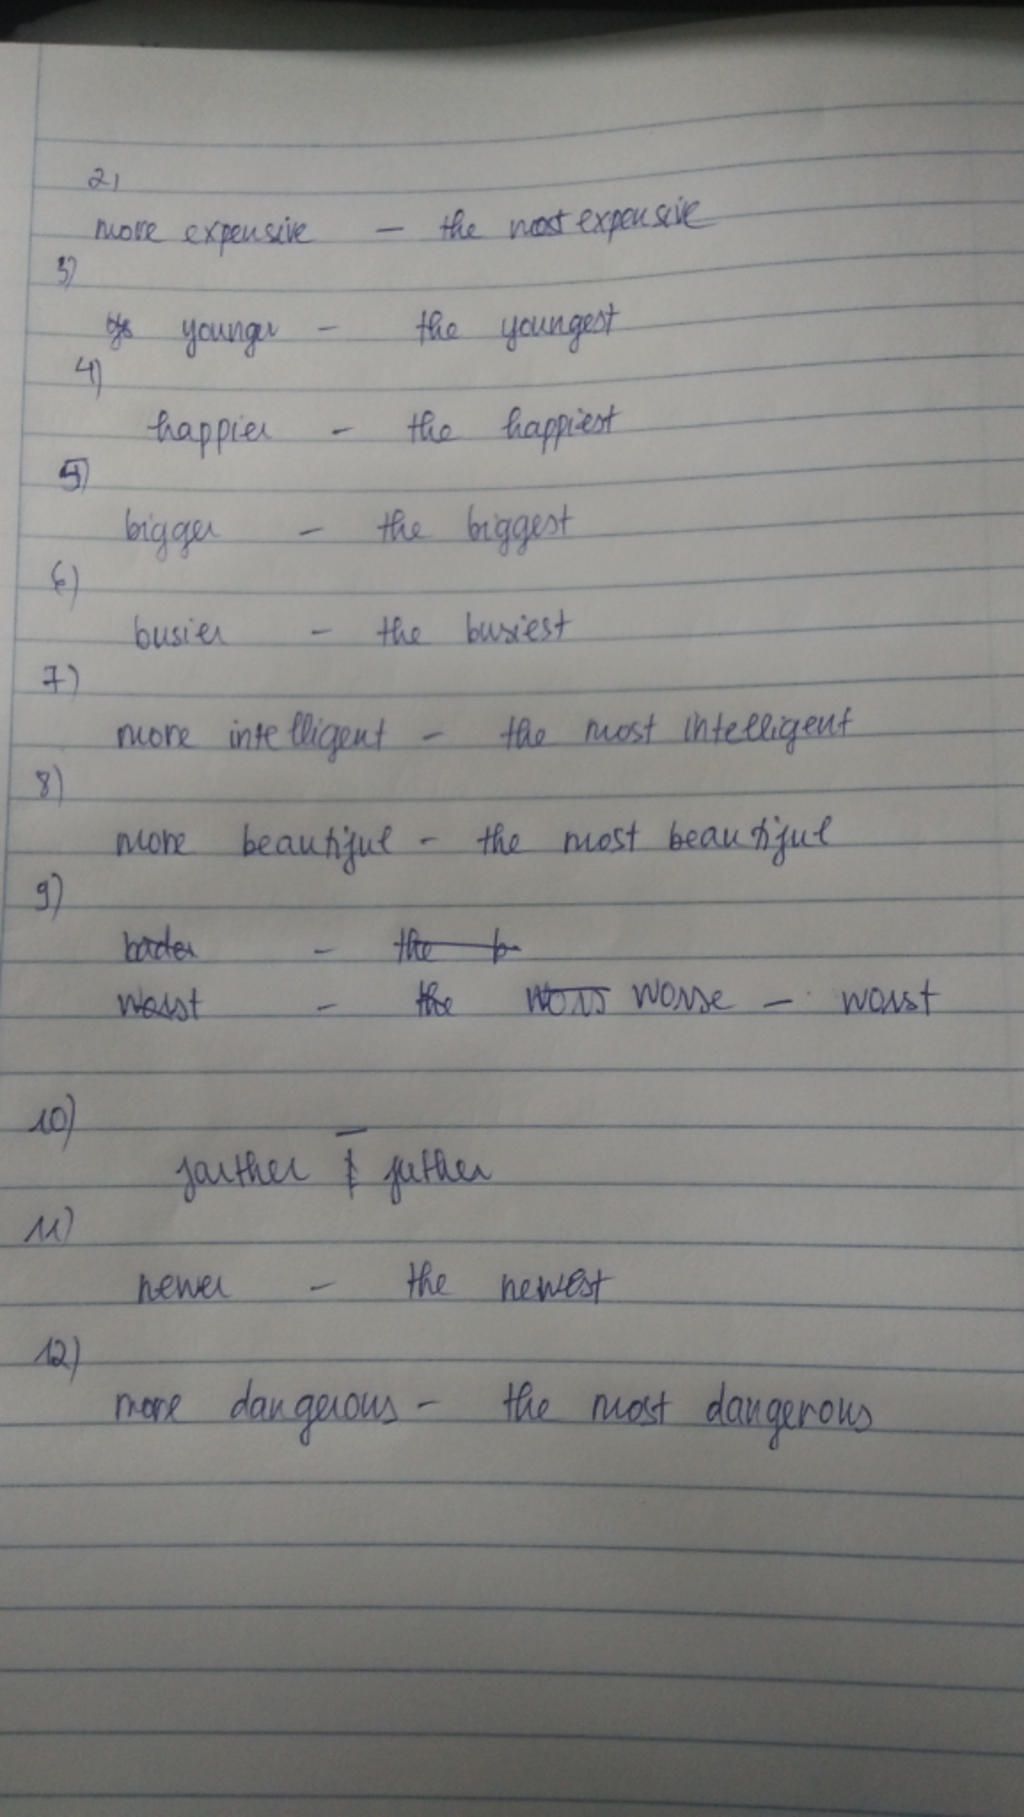 2)
more expensive - the most expensive
3)
younger - the youngest
4)
happier - the happiest
5)
bigger - the biggest
6)
busier - the busiest
7)
more intelligent - the most intelligent
8)
more beautiful - the most beautiful
9)
bader - the b
worst - the wors worse - worst
10)
farther - futher
11)
newer - the newest
12)
more dangerous - the most dangerous